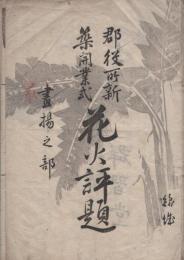 郡役所新
築開業式
花火評題
晝揚之部